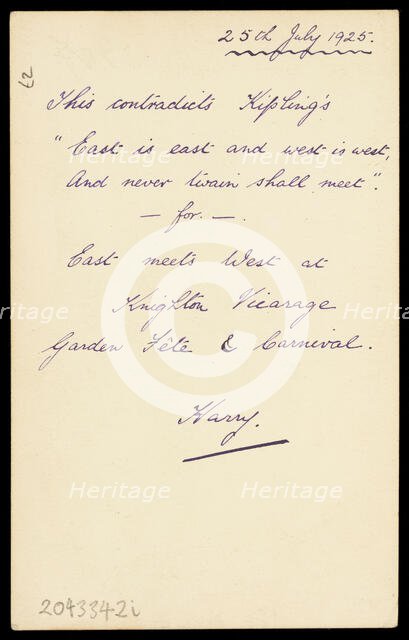 25th July 1925.
27
This contradicts Kipling's
"East is east and west is west,
And never twain shall meet".
— for. —.
East meets West at
Knighton Vicarage
Garden Fête & Carnival.
Harry.
2043342i
Heritage
Heritage
Heritage
Heritage
Heritage
Heritage
©